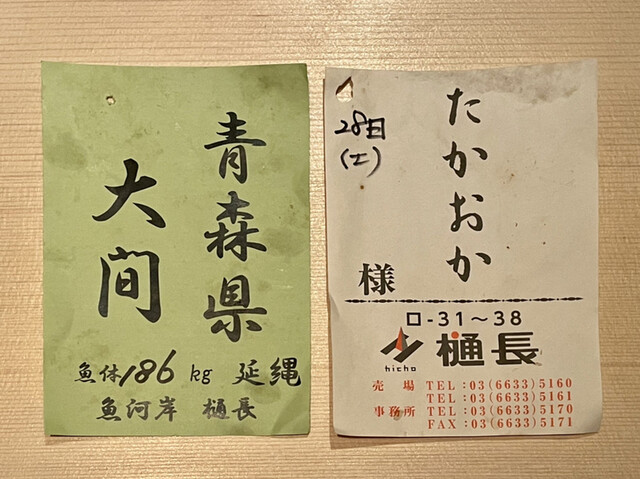 青森県
大間
魚体186kg 延縄
魚河岸 樋長
28日
(土)
たかおか
様
ロ-31～38
hicho
樋長
売場 TEL:03(6633)5160
TEL:03(6633)5161
事務所 TEL:03(6633)5170
FAX:03(6633)5171